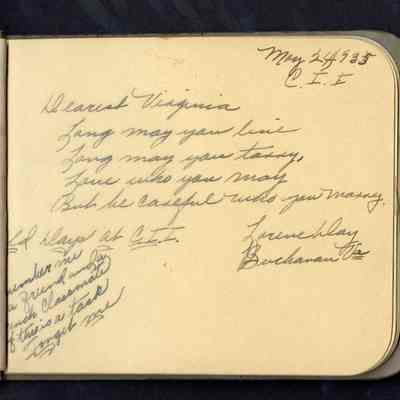 May 24 1935
C. I. I
Dearest Virginia
Long may you live
Long may you tarry,
Love who you may
But be careful who you marry.
Old days at C.I.I.
Lorene
Buchanan Va
Remember me
a friend and a
classmate
if this is a task
forget me